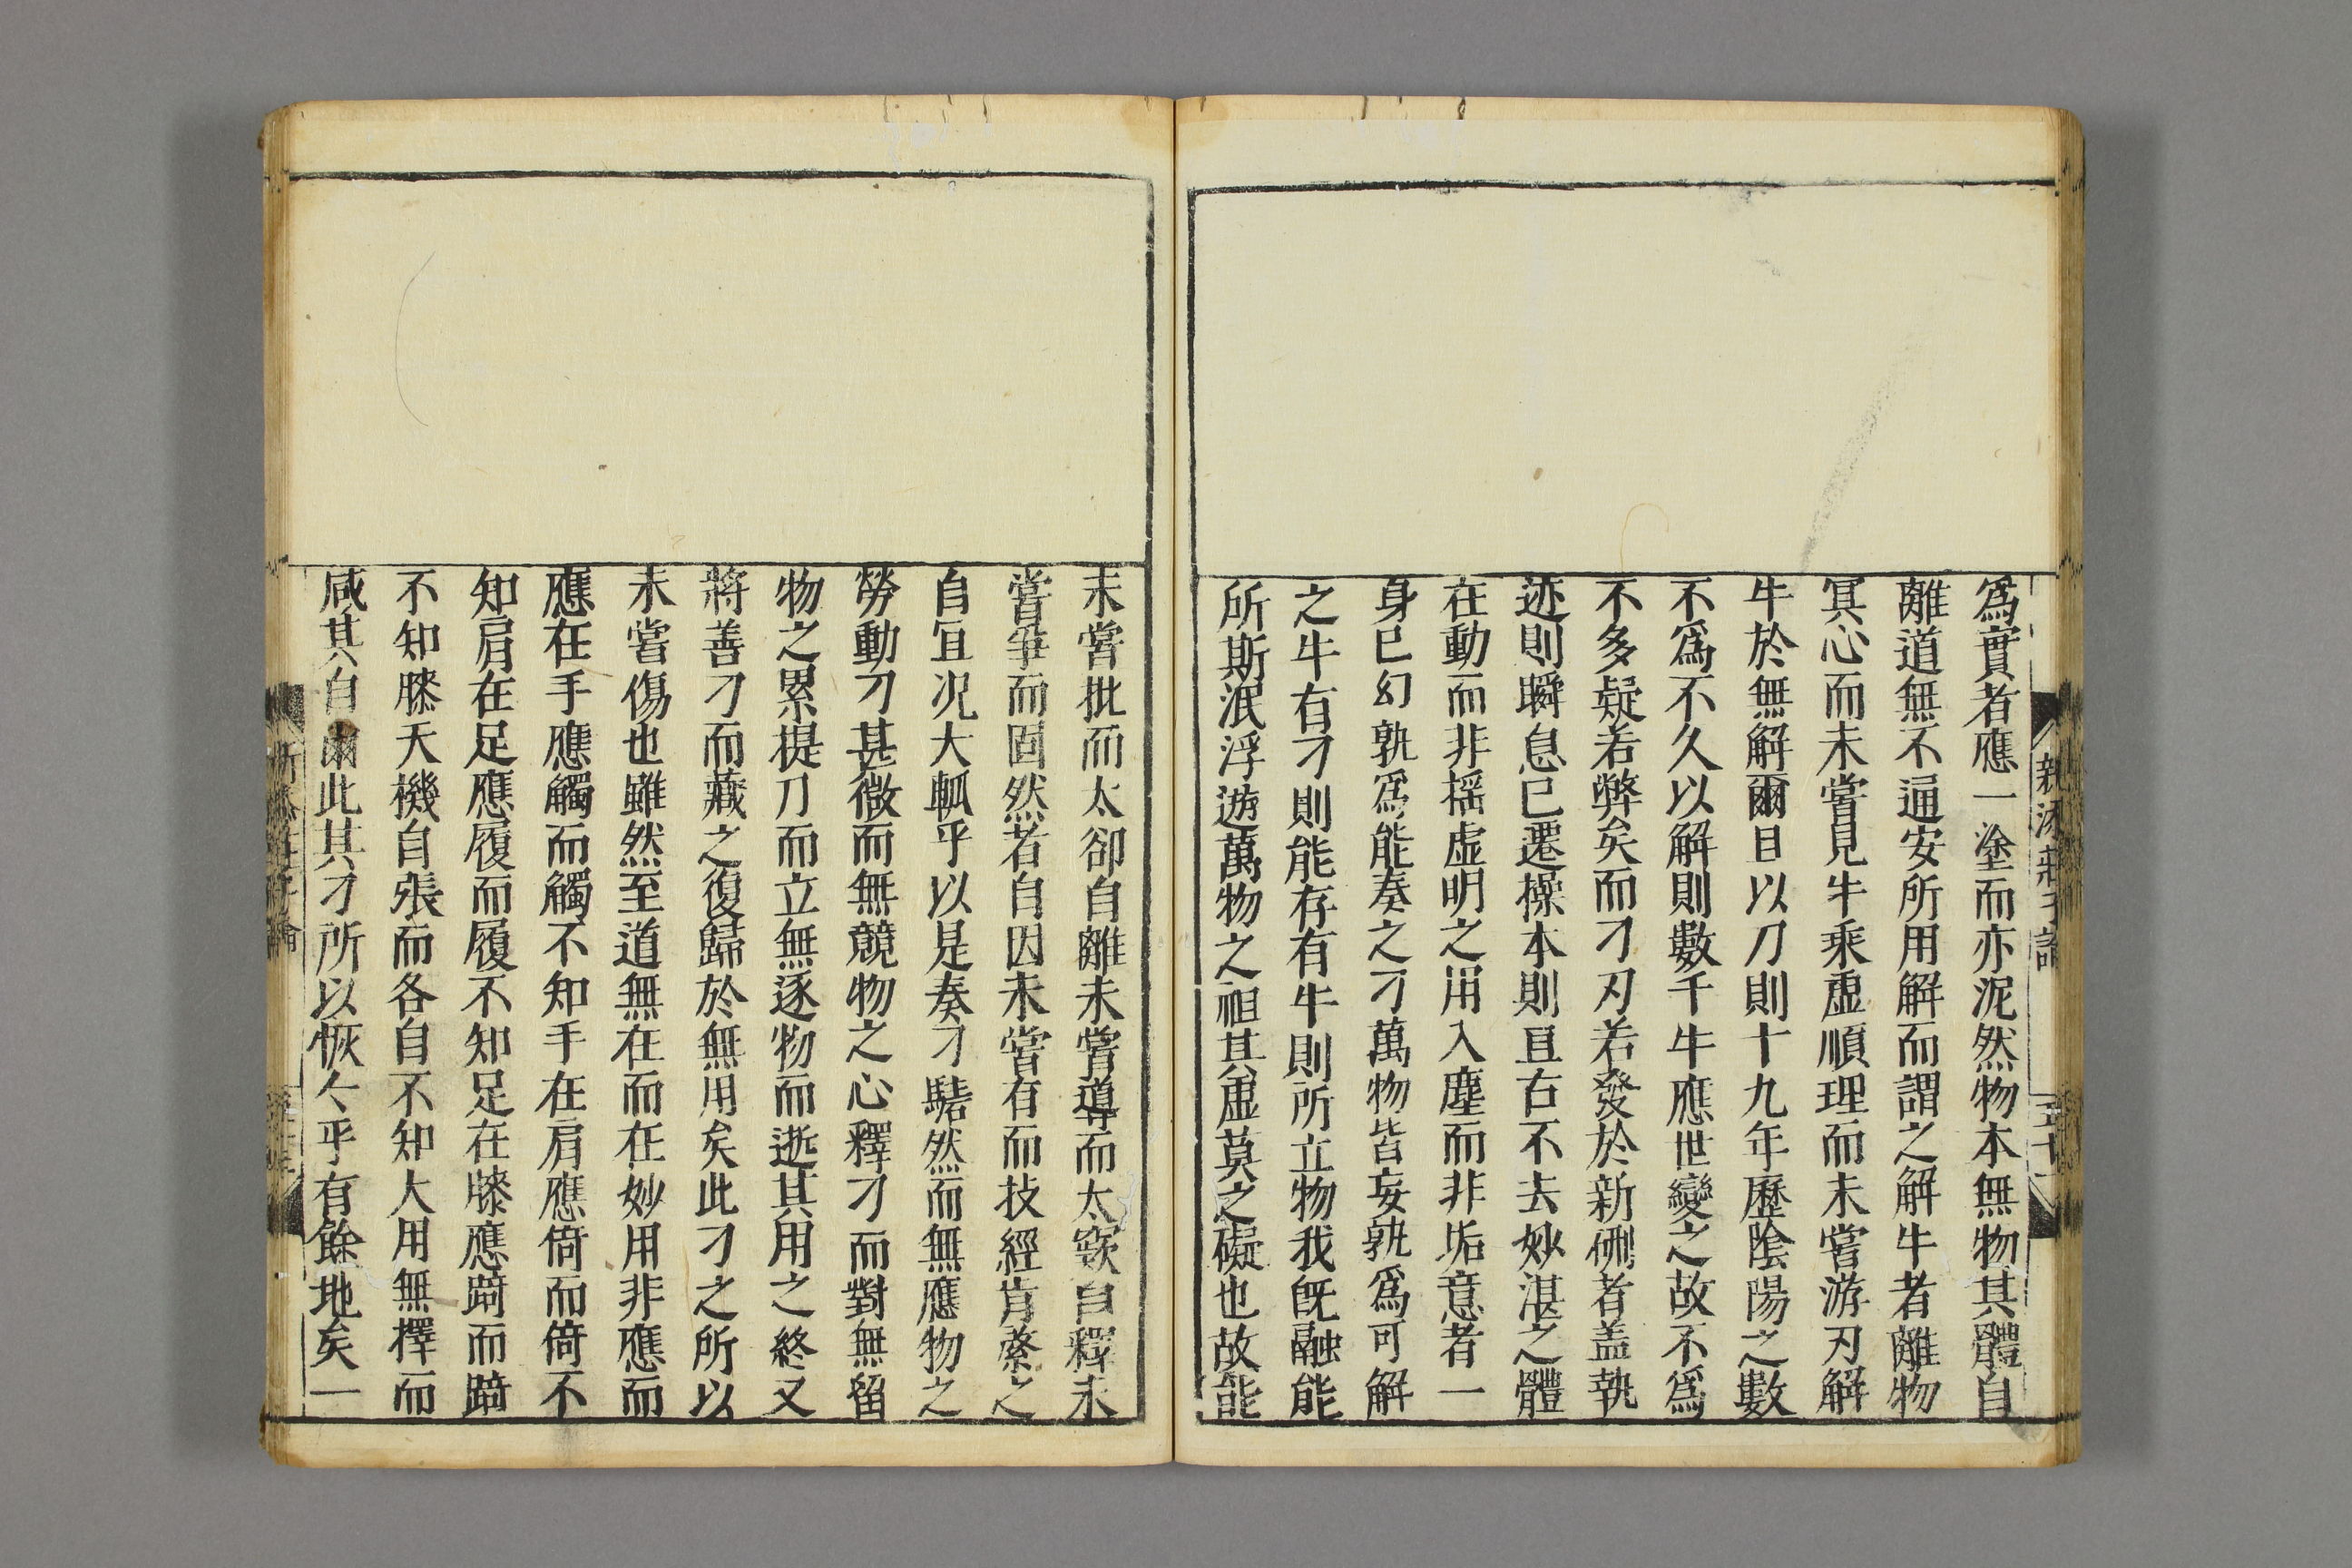 為實者應一塗而亦泥然物本無物其體自
離道無不通安所用解而謂之解牛者離物
冥心而未嘗見牛乘虛順理而未嘗游刃解
牛於無解爾且以刀則十九年歷陰陽之數
不為不久以解則數千牛應世變之故不為
不多疑若弊矣而刀刃若發於新硎者盖執
迹則瞬息已遷操本則亘古不去妙湛之體
在動而非搖虛明之用入塵而非垢意者一
身已幻孰為能奏之刀萬物皆妄孰為可解
之牛有刀則能存有牛則所立物我旣融能
所斯泯浮遊萬物之祖其虛莫之礙也故能
未嘗批而太卻自離未嘗導而太窾自釋未
嘗爭而固然若自因未嘗有而技經肯綮之
自冝况大軱乎以是奏刀騞然而無應物之
勞動刀甚微而無競物之心釋刀而對無留
物之累提刀而立無逐物而逝其用之終又
將善刀而藏之復歸於無用矣此刀之所以
未嘗傷也雖然至道無在而在妙用非應而
應在手應觸而觸不知手在肩應倚而倚不
知肩在足應履而履不知足在膝應踦而踦
不知膝天機自張而各自不知大用無擇而
咸其自爾此其刀所以恢恢乎有餘地矣一
莊子論
五十一